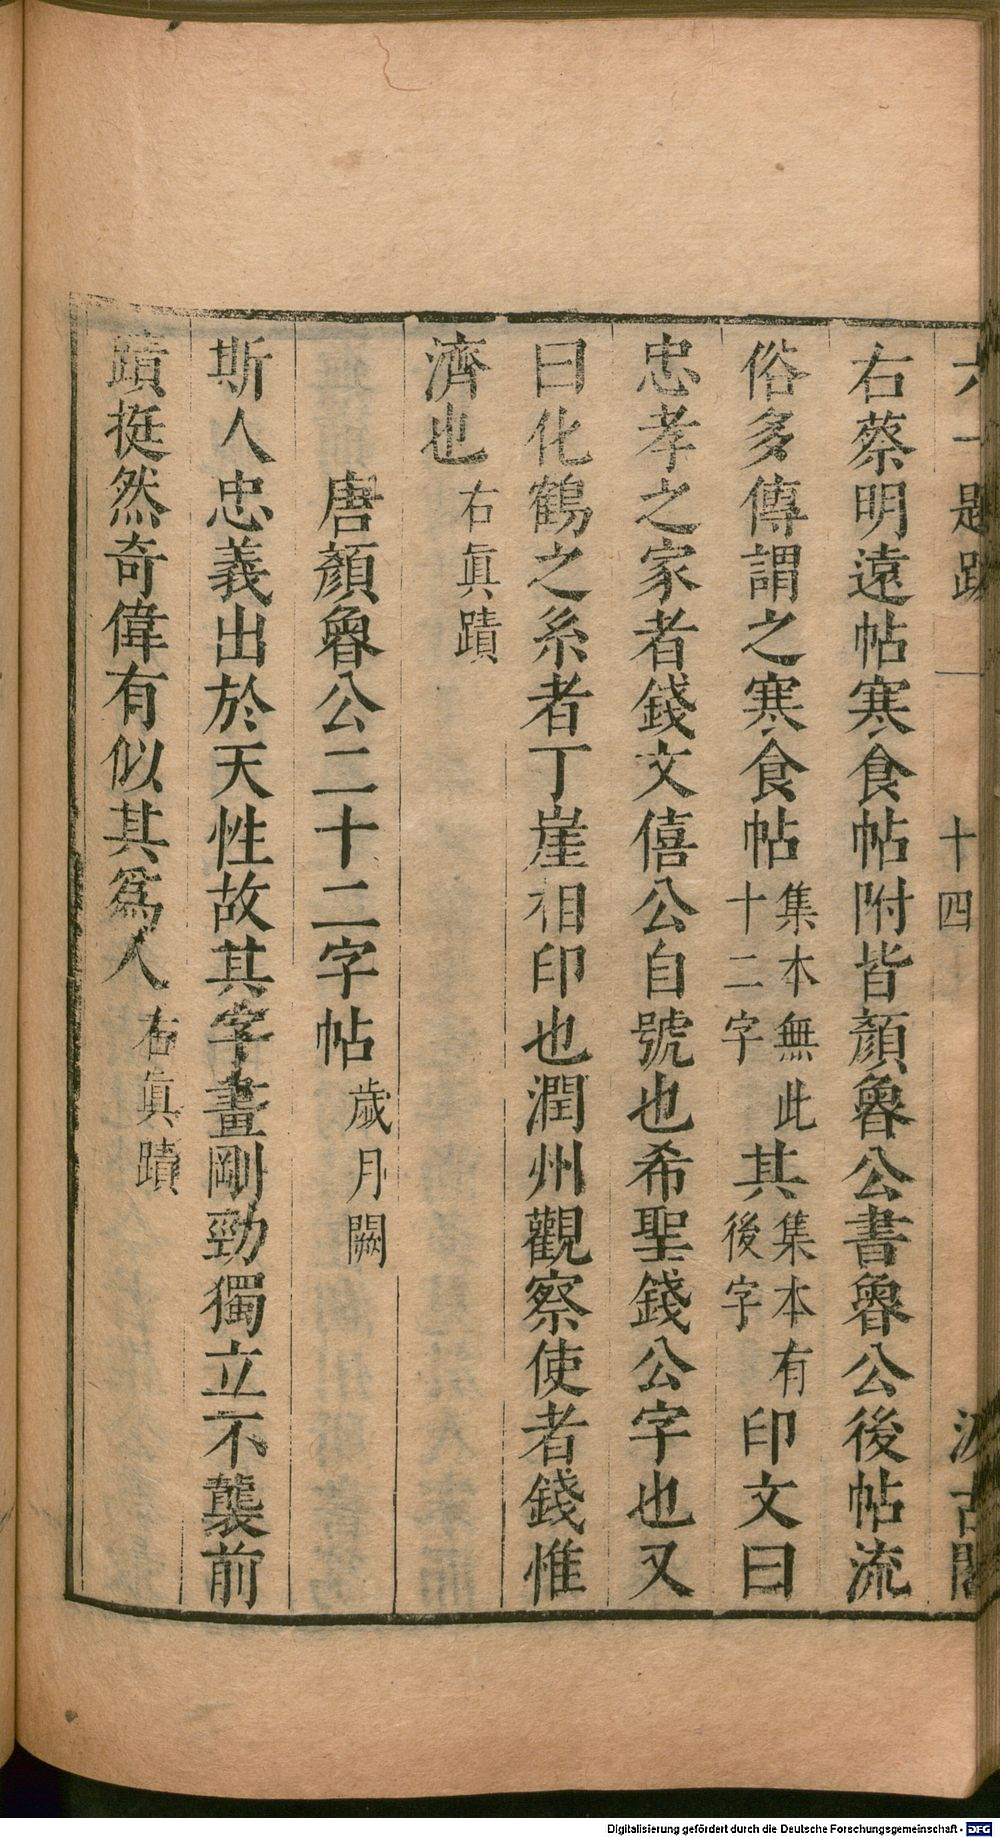 六一題跋 十四 汲古閣
右蔡明遠帖寒食帖附皆顏魯公書魯公後帖流
俗多傳謂之寒食帖集本無此十二字其集本有後字印文曰
忠孝之家者錢文僖公自號也希聖錢公字也又
曰化鶴之系者丁崖相印也潤州觀察使者錢惟
濟也右眞蹟
唐顏魯公二十二字帖歲月闕
斯人忠義出於天性故其字畫剛勁獨立不襲前
蹟挺然奇偉有似其爲人右眞蹟
Digitalisierung gefördert durch die Deutsche Forschungsgemeinschaft - DFG